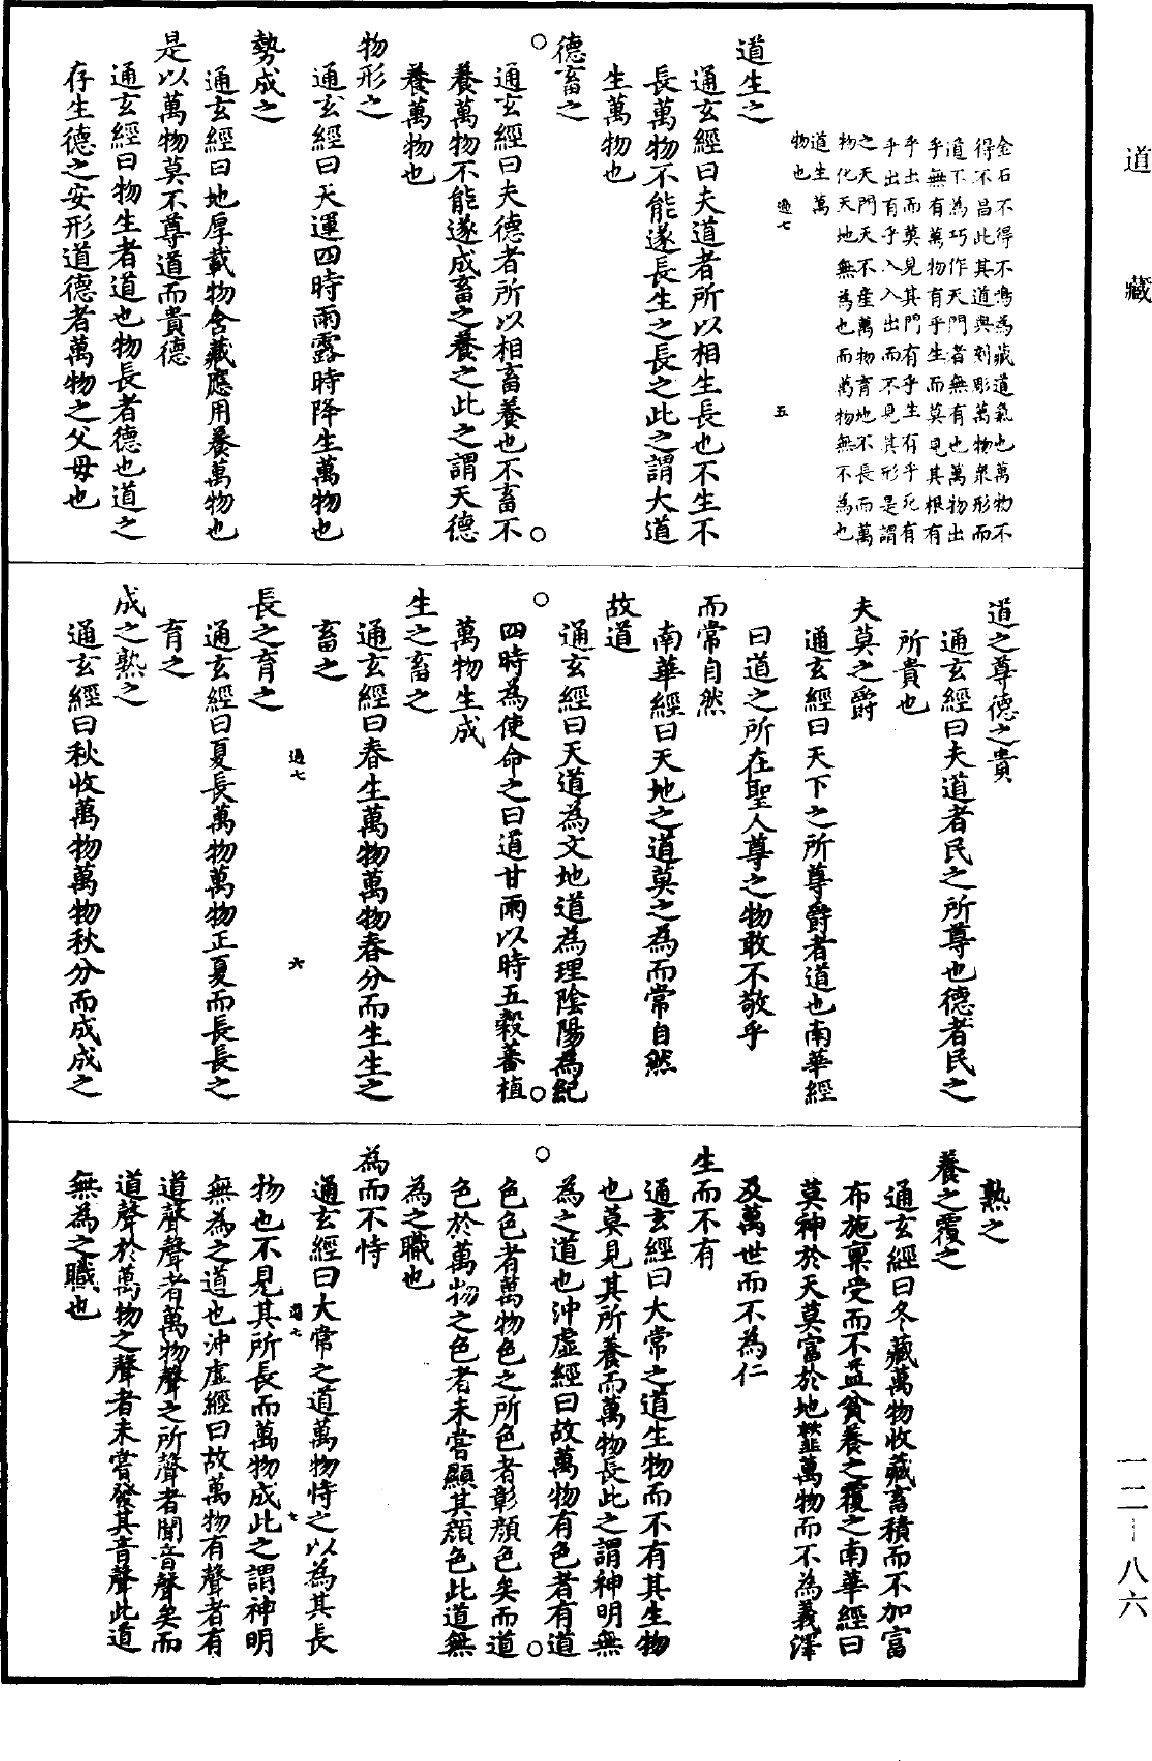 道藏
金石不得不鳴為藏道氣也萬物不
得不昌此其道與刻彫萬物衆形而
道不為巧作天門者無有也萬物出
乎無有萬物有乎生而莫見其根有
乎出而莫見其門有乎生有乎死有
乎出有乎入入出而不見其形是謂
之天門天不產萬物育地不長而萬
物化天地無為也而萬物無不為也
道生萬
物也
過七
五
道生之
通玄經曰夫道者所以相生長也不生不
長萬物不能遂長生之長之此之謂大道
生萬物也
德畜之
通玄經曰夫德者所以相畜養也不畜不
養萬物不能遂成畜之養之此之謂天德
養萬物也
物形之
通玄經曰天運四時雨露時降生萬物也
勢成之
通玄經曰地厚載物含藏應用養萬物也
是以萬物莫不尊道而貴德
通玄經曰物生者道也物長者德也道之
存生德之安形道德者萬物之父母也
道之尊德之貴
通玄經曰夫道者民之所尊也德者民之
所貴也
夫莫之爵
通玄經曰天下之所尊爵者道也南華經
曰道之所在聖人尊之物敢不敬乎
而常自然
南華經曰天地之道莫之為而常自然
故道
通玄經曰天道為文地道為理陰陽為紀
四時為使命之曰道甘雨以時五穀蕃植
萬物生成
生之畜之
通玄經曰春生萬物萬物春分而生生之
畜之
過七
六
長之育之
通玄經曰夏長萬物萬物正夏而長長之
育之
成之熟之
通玄經曰秋收萬物萬物秋分而成成之
熟之
養之覆之
通玄經曰冬藏萬物收藏畜積而不加富
布施稟受而不益貧養之覆之南華經曰
莫神於天莫富於地䪠萬物而不為義澤
及萬世而不為仁
生而不有
通玄經曰大常之道生物而不有其生物
也莫見其所養而萬物長此之謂神明無
為之道也沖虛經曰故萬物有色者有道
色色者萬物色之所色者彰顔色矣而道
色於萬物之色者未嘗顯其顔色此道無
為之職也
為而不恃
通玄經曰大常之道萬物恃之以為其長
過七
七
物也不見其所長而萬物成此之謂神明
無為之道也沖虛經曰故萬物有聲者有
道聲聲者萬物聲之所聲者聞音聲矣而
道聲於萬物之聲者未嘗發其音聲此道
無為之職也
一二–八六